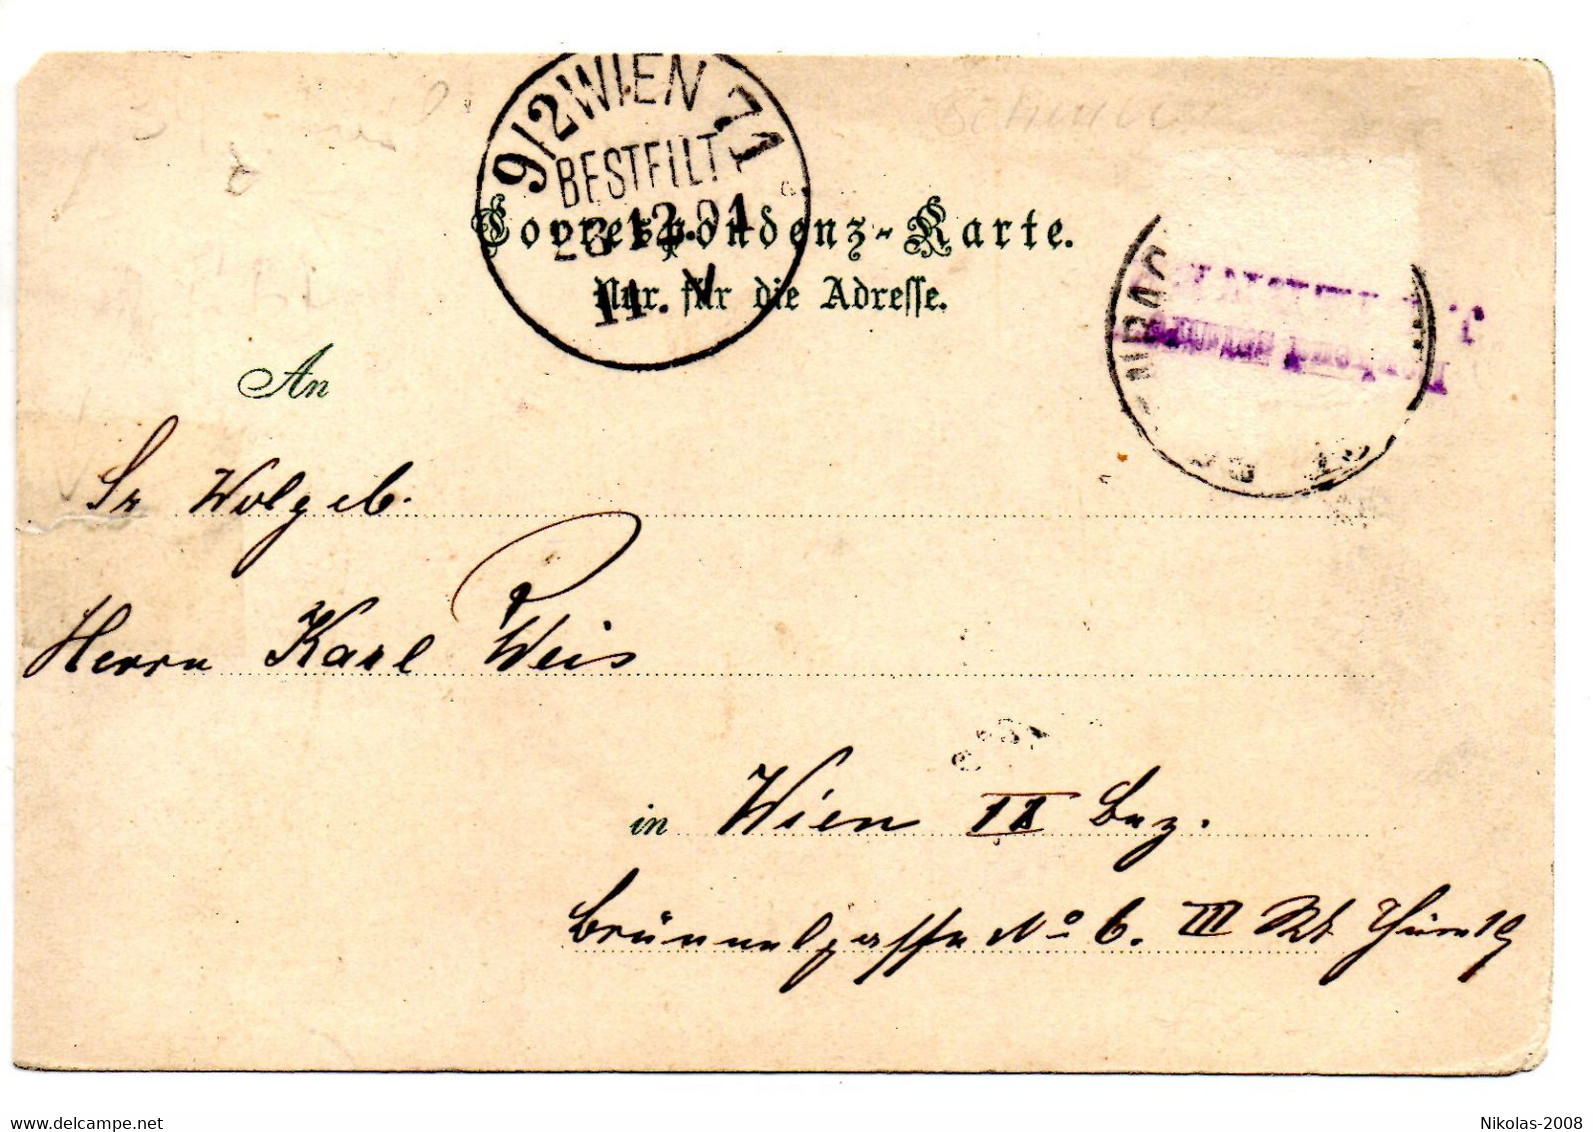 9/2 WIEN 71
BESTELLT
23.12.01
11. V
Correspondenz-Karte.
Nur für die Adresse.
An
Sr Wolgeb.
Herrn Karl Weis
in Wien IX Bez.
No 6. III Thür 19
www.delcampe.net
Nikolas-2008